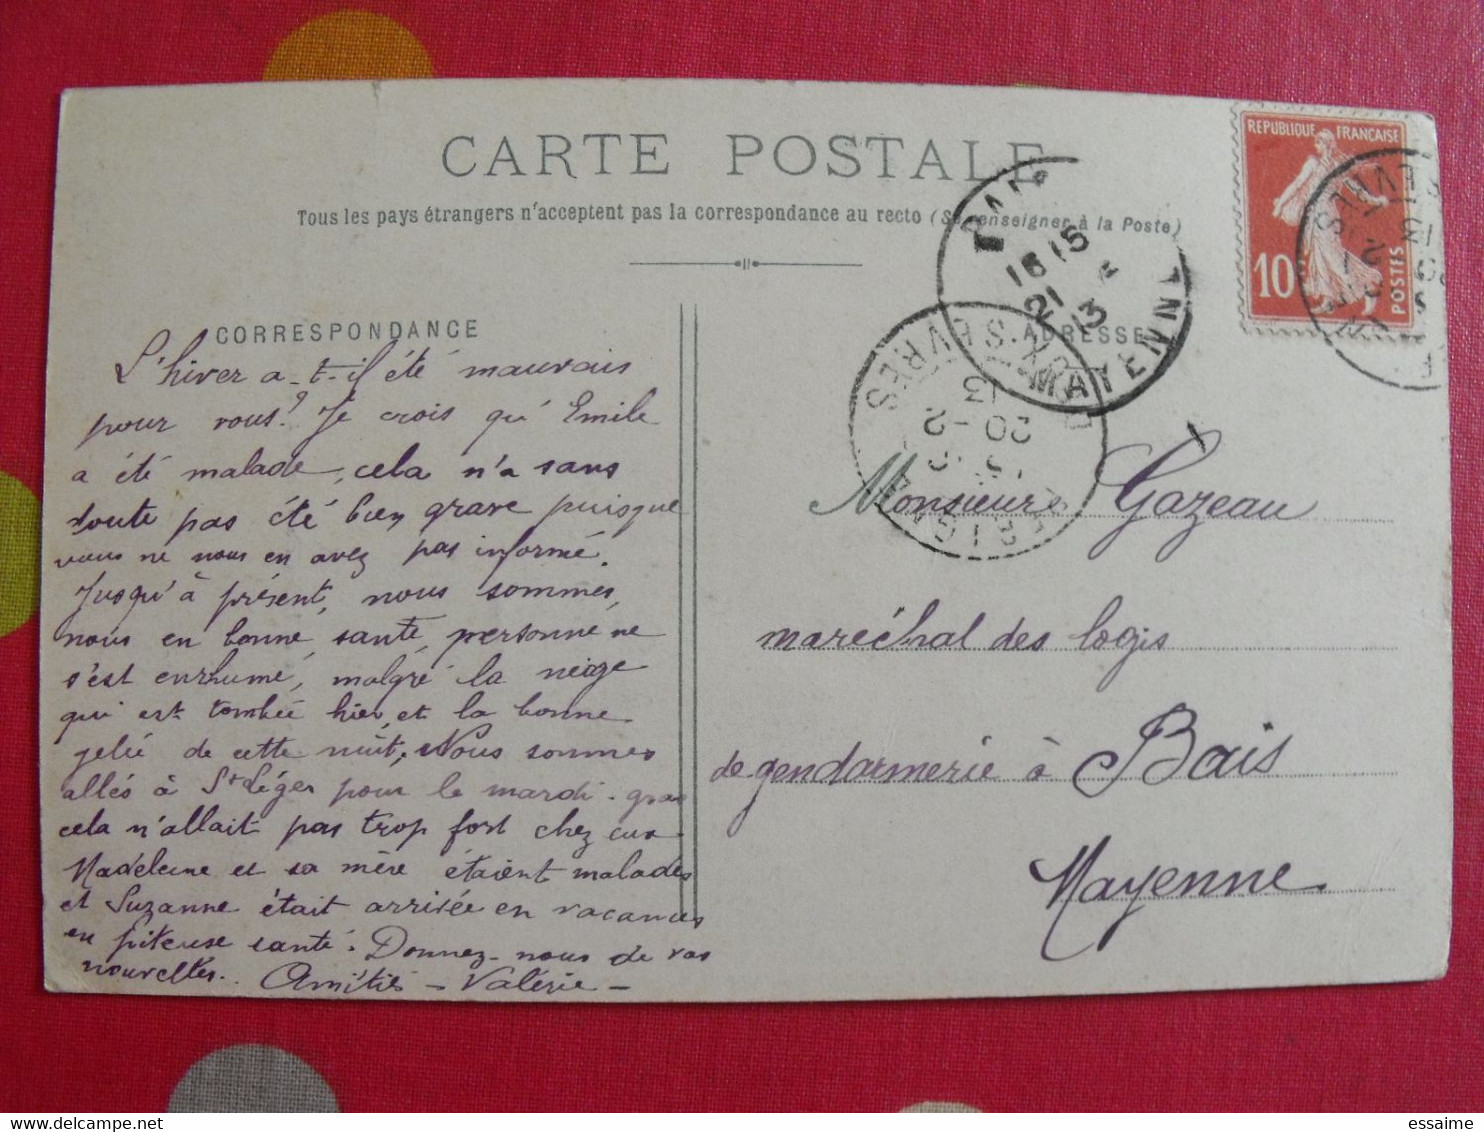 CARTE POSTALE
Tous les pays étrangers n'acceptent pas la correspondance au recto (Se renseigner à la Poste)
CORRESPONDANCE
ADRESSE
REPUBLIQUE FRANÇAISE
10
POSTES
16 15
21 2
13
MAYENNE
SEVRES
20 - 2
13
L'hiver a-t-il été mauvais
pour vous? Je crois qu'Emile
a été malade, cela n'a sans
doute pas été bien grave puisque
vous ne nous en avez pas informé.
Jusqu'à présent, nous sommes,
nous en bonne santé, personne ne
s'est enrhumé, malgré la neige
qui est tombée hier, et la bonne
gelée de cette nuit. Nous sommes
allés à St Léger pour le mardi-gras
cela n'allait pas trop fort chez eux
Madeleine et sa mère étaient malades
et Suzanne était arrivée en vacances
en piteuse santé. Donnez-nous de vos
nouvelles. Amitiés - Valérie -
Monsieur Gazeau
maréchal des logis
de gendarmerie à Bais
Mayenne
essaime